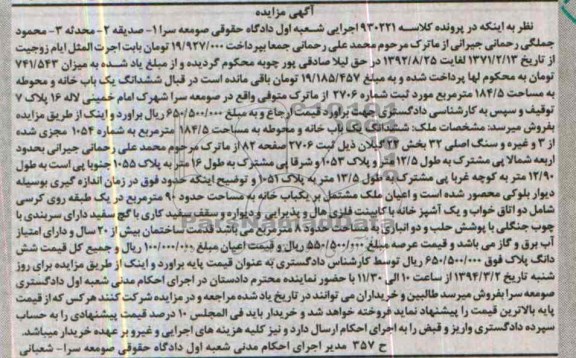 آگهی مزایده
نظر به اینکه در پرونده کلاسه ۹۳۰۲۲۱ اجرایی شعبه اول دادگاه حقوقی صومعه سرا ۱- صدیقه ۲- محدثه ۳- محمود
جملگی رحمانی جیرانی از ماترک مرحوم محمد علی رحمانی جمعا بپرداخت ۱۹/۹۲۷/۰۰۰ تومان بابت اجرت المثل ایام زوجیت
از تاریخ ۱۳۷۱/۲/۱۳ لغایت ۱۳۹۲/۸/۲۵ در حق لیلا صادقی پور چوبه محکوم گردیده و از مبلغ یاد شده به میزان ۷۴۱/۵۴۳
تومان به محکوم لها پرداخت شده و به مبلغ ۱۹/۱۸۵/۴۵۷ تومان باقی مانده است در قبال ششدانگ یک باب خانه و محوطه
به مساحت ۱۸۴/۵ مترمربع مورد ثبت شماره ۲۷۰۶ از ماترک متوفی واقع در صومعه سرا شهرک امام خمینی لاله ۱۶ پلاک ۷
توقیف و سپس به کارشناسی دادگستری جهت برآورد قیمت ارجاع و به مبلغ ۶۵۰/۵۰۰/۰۰۰ ریال براورد و اینک از طریق مزایده
بفروش میرسد: مشخصات ملک: ششدانگ یک باب خانه و محوطه به مساحت ۱۸۴/۵ مترمربع به شماره ۱۰۵۴ مجزی شده
از ۳ و غیره و سنگ اصلی ۳۲ بخش ۲۳ گیلان ذیل ثبت ۲۷۰۶ صفحه ۸۲ از ماترک مرحوم محمد علی رحمانی جیرانی بحدود
اربعه شمالا پی مشترک به طول ۱۳/۵ متر و پلاک ۱۰۵۳ و شرقا پی مشترک به طول ۱۶ متر به پلاک ۱۰۵۵ جنوبا پی است به طول
۱۲/۹۰ متر به کوچه غربا پی مشترک به طول ۱۳/۵ متر به پلاک ۱۰۵۱ و توضیح اینکه حدود فوق در زمان اندازه گیری بوسیله
دیوار بلوکی محصور شده است و اعیان ملک مشتمل بر یکباب خانه به مساحت حدود ۹۰ مترمربع در یک طبقه روی کرسی
شامل دو اتاق خواب و یک آشپز خانه با کابینت فلزی هال و پذیرایی و دیوار و سقف سفید کاری با گچ سفید دارای سربندی با
چوب جنگلی با پوشش حلب و دو انباری به مساحت حدود ۱۸ مترمربع می باشد قدمت ساختمان بیش از ۲۰ سال و دارای امتیاز
آب برق و گاز می باشد و قیمت عرصه مبلغ ۵۵۰/۵۰۰/۰۰۰ ریال و قیمت اعیان مبلغ ۱۰۰/۰۰۰/۰۰۰ ریال و جمیع کل قیمت شش
دانگ پلاک فوق ۶۵۰/۵۰۰/۰۰۰ ریال توسط کارشناس دادگستری به عنوان قیمت پایه براورد و اینک از طریق مزایده برای روز
شنبه تاریخ ۱۳۹۴/۳/۲ از ساعت ۱۰ الی ۱۱/۳۰ با حضور نماینده محترم دادستان در اجرای احکام مدنی شعبه اول دادگستری
صومعه سرا بفروش میرسد طالبین و خریداران می توانند در تاریخ یاد شده مراجعه و در مزایده شرکت کنند هر کس که از قیمت
پایه بالاترین قیمت را پیشنهاد نماید فروخته خواهد شد و خریدار باید فی المجلس ۱۰ درصد قیمت پیشنهادی را به حساب
سپرده دادگستری واریز و قبض را به اجرای احکام ارسال دارد و نیز کلیه هزینه های اجرایی و غیرو بر عهده خریدار میباشد.
ح ۳۵۷ مدیر اجرای احکام مدنی شعبه اول دادگاه حقوقی صومعه سرا- شعبانی